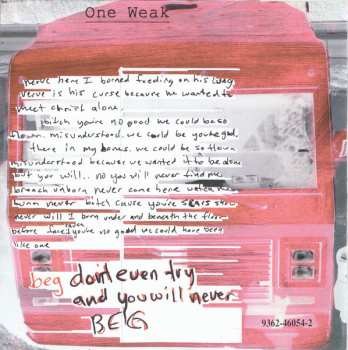 One Weak
nerve here I borned feeding on his
nerve is his curse because he wanted to
meet christ alone.
bitch you're no good we could be so
down. misunderstood. we could be
there in my bones. we could be so down
misunderstood because we wanted it to be done
but you will.. no you will never find me
unborn never come here when
burn never bitch cause you're scars show
never will I born under and beneath the floor
before you're no good we could have been
like one
beg don't even try
and you will never
BEG
9362-46054-2